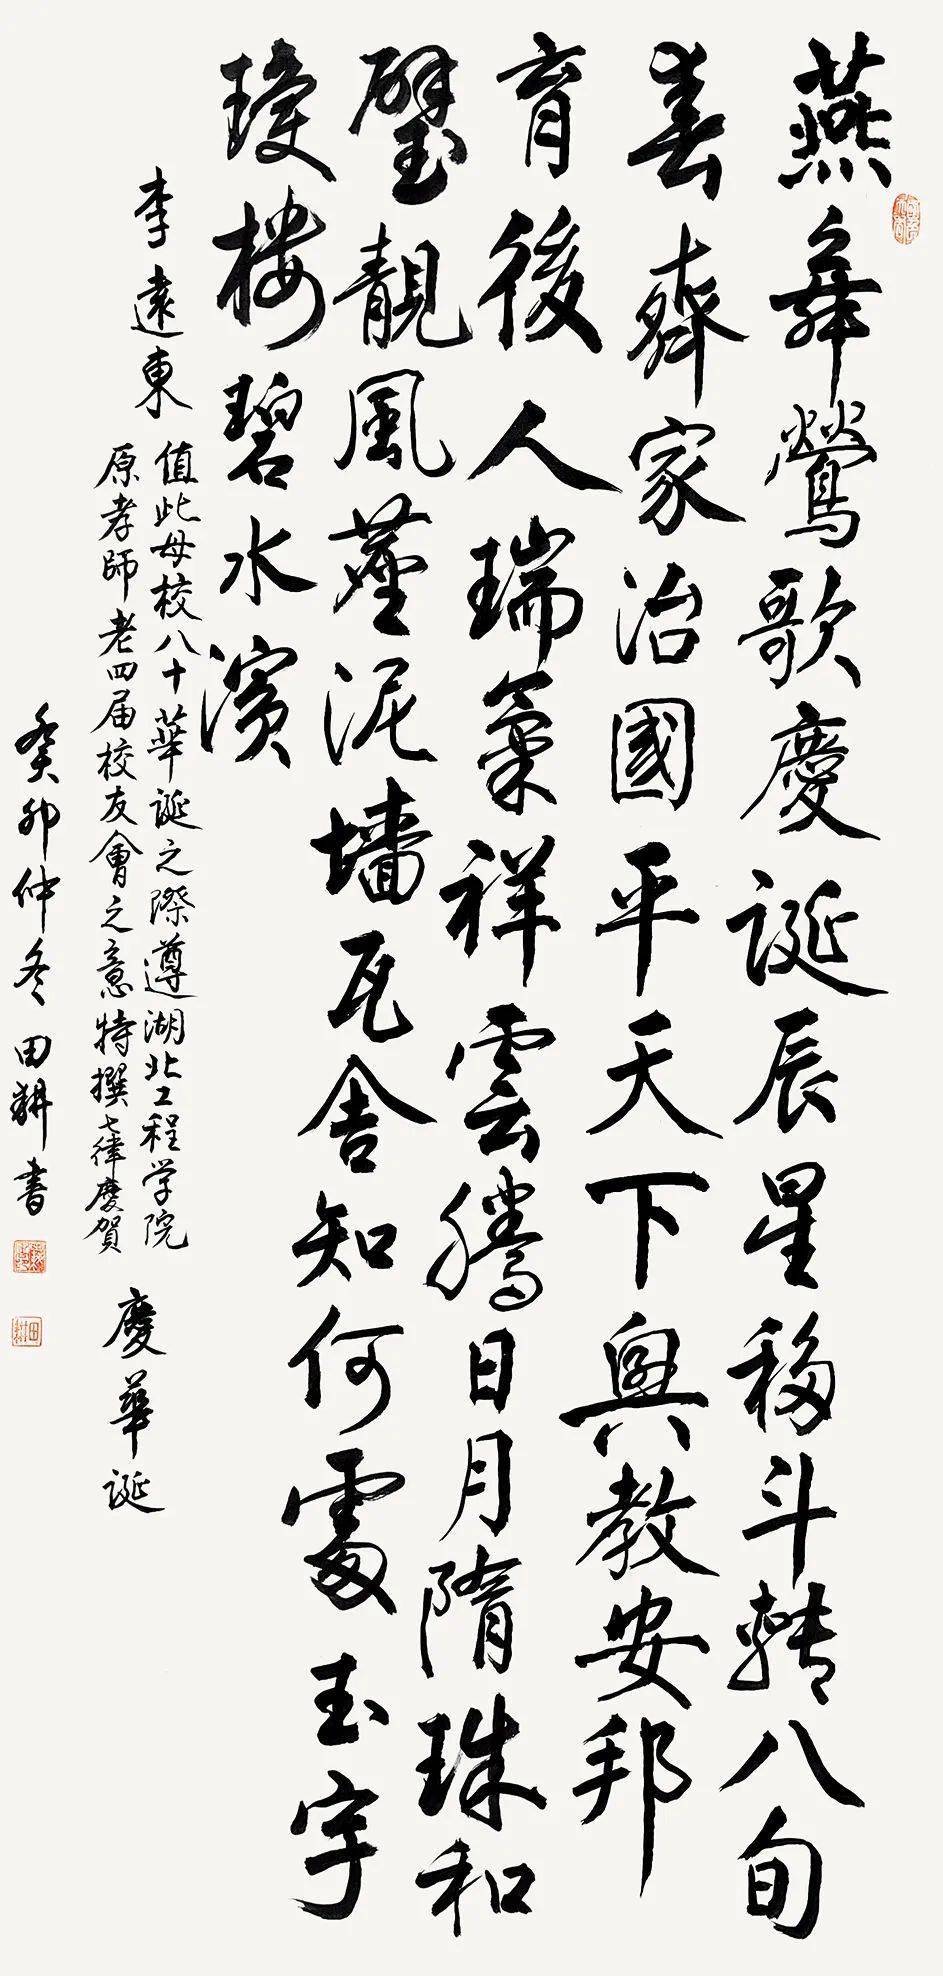 燕舞鶯歌慶誕辰星移斗轉八旬
春齊家治國平天下興教安邦
育後人瑞氣祥雲騰日月隋珠和
璧靚風塵泥墙瓦舍知何處玉宇
瓊樓碧水濱
李遠東
值此母校八十華誕之際遵湖北工程学院
原孝師老四届校友會之意特撰七律慶賀
慶華誕
癸卯仲冬田耕書